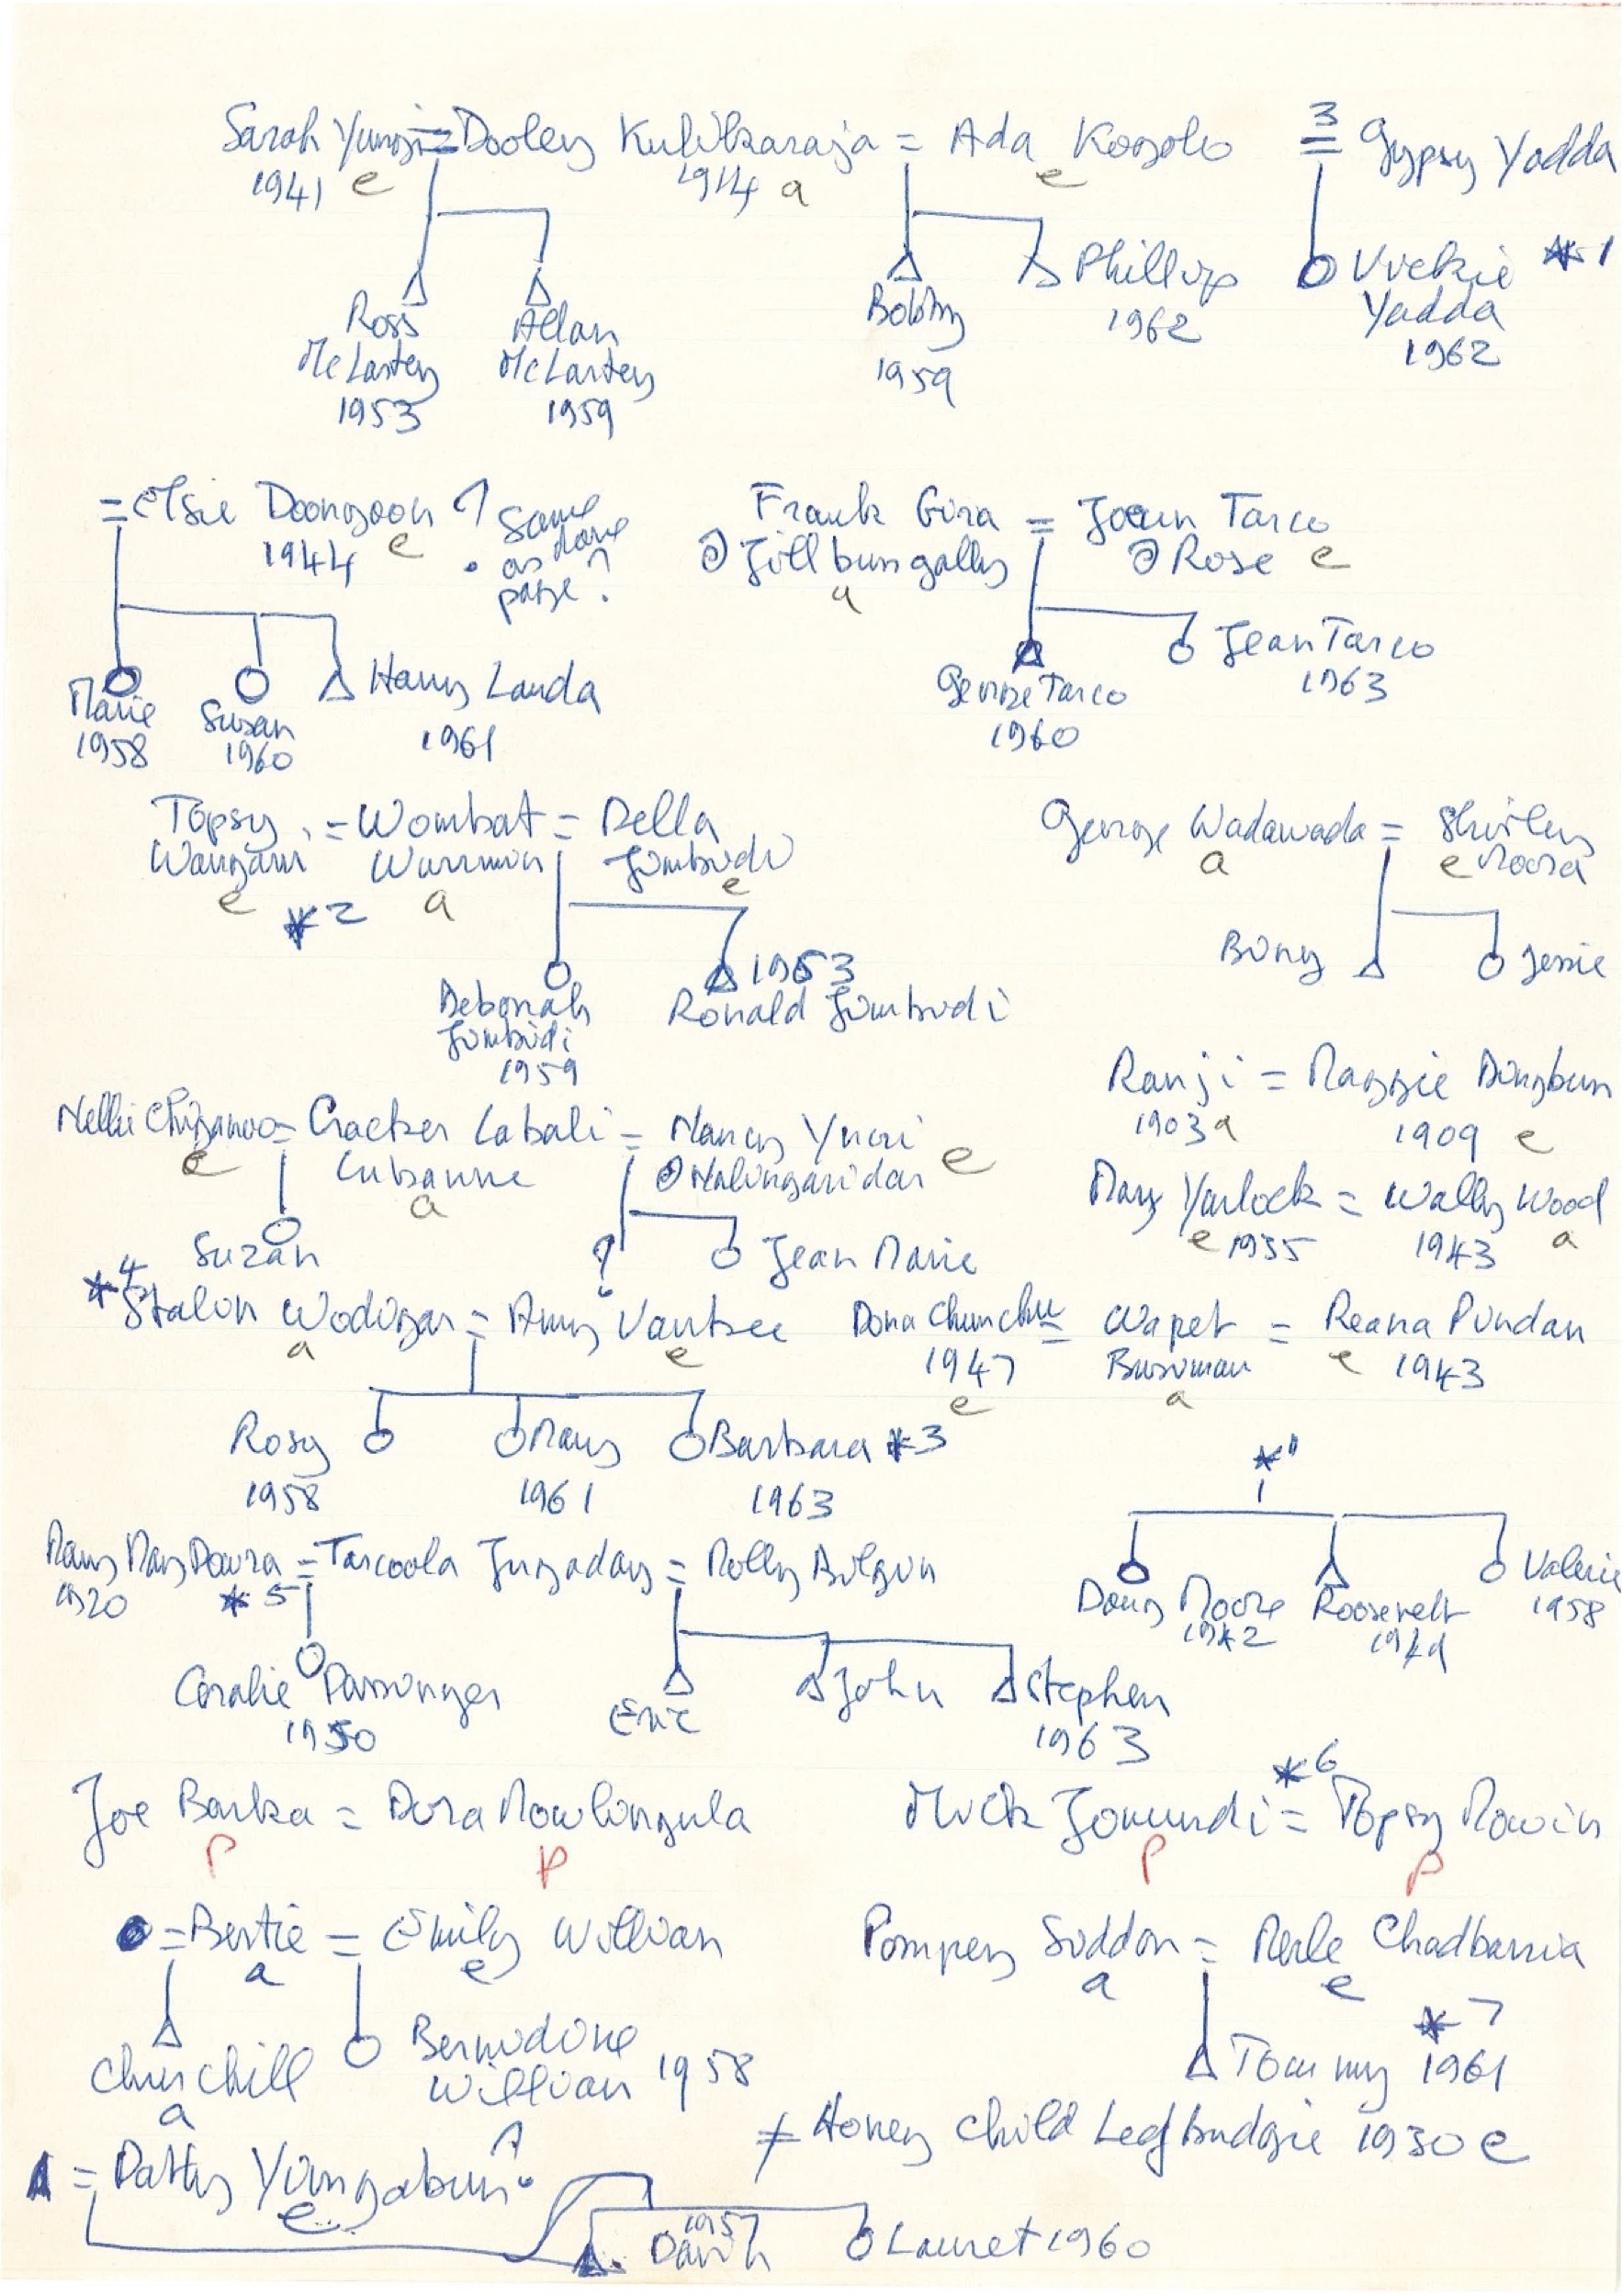 Sarah Yungi = Dooley Kulikaraja = Ada Kogolo 3 = Gypsy Yadda
1941 e 1914 a e
Ross McLartey 1953
Allan McLartey 1959
Bobby 1959
Phillip 1962
Vickie Yadda 1962 *1
= Elsie Doongoon ? Same as above page ?
1944 e
Marie 1958
Susan 1960
Harry Landa 1961
Frank Gira = Joan Tarco
Jillbungally Rose e
a
George Tarco 1960
Jean Tarco 1963
Topsy = Wombat = Della
Wangarri Wurrmin Jumbudi
e *2 a e
Deborah Jumbidi 1959
1963
Ronald Jumbudi
George Wadawada = Shirley Moora
a e
Biney Jessie
Ranji = Maggie Dingbun
1903 a 1909 e
Nellie = Cracker Labali = Nancy Yuari
e Lubanne a e
Suzan
? Jean Marie
Mary Yarlock = Wally Wood
e 1935 1943 a
*4
Stalin Wodigar = Amy Vantree
a e
Rosy 1958
Mary 1961
Barbara *3 1963
Dona Chunchu = Wapet = Reana Pindan
1947 Busuman e 1943
e a
*1
Daisy Moore 1942
Roosevelt
Valerie 1958
Mary May Doura = Tarcoola Jugaday = Molly Bilgin
1920 *5
Coralie Passinger 1950
Eric
John
Stephen 1963
Joe Barka = Dora Nowlingula
P P
*6
Mick Jomundi = Topsy Mowin
P P
= Bertie = Emily Willian
a e
Churchill a
Bernidine Willian 1958
Pompey Siddon = Merle Chadbarria
a e
*7
Tommy 1961
≠ Honey Child Legbudgie 1930 e
= Patty Yungabun ?
e
1957
David
Lauret 1960